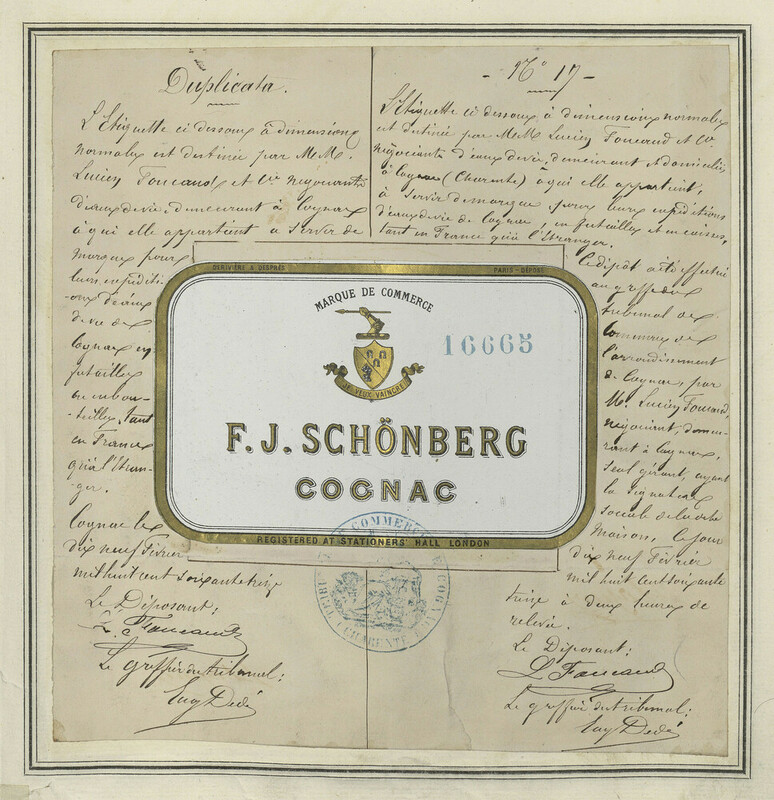 Duplicata.
L'Etiquette ci dessous à dimensions
normales est destinée par M.M.
Lucien Foucaud et Cie négociants
d'eaux de vie, demeurant à Cognac
à qui elle appartient à servir de
marque pour
leurs expéditi-
-ons d'eaux
de vie de
Cognac en
futailles
ou en bou-
-teilles, tant
en France
qu'à l'Etran-
ger.
Cognac le
dix neuf Février
mil huit cent soixante treize
Le Déposant:
L. Foucaud
Le greffier du tribunal:
Eug Dedé
- No 17 -
L'Etiquette ci dessous à dimensions normales
est destinée par M.M. Lucien Foucaud et Cie
négociants d'eaux de vie, demeurant et domiciliés
à Cognac (Charente) à qui elle appartient,
à servir de marque, pour leurs expéditions
d'eaux de vie de Cognac, en futailles et en caisses,
tant en France qu'à l'Etranger.
Le dépôt a été effectué
au greffe du
tribunal de
Commerce de
l'arrondissement
de Cognac, par
M. Lucien Foucaud,
négociant, demeu-
rant à Cognac,
seul gérant, ayant
la signature
sociale de la dite
maison, ce jour
dix neuf Février
mil huit cent soixante
treize à deux heures de
relevée.
Le Déposant:
L Foucaud
Le greffier du tribunal:
Eug Dedé
DERIVIÈRE & DESPRÉS
PARIS - DÉPOSÉ
MARQUE DE COMMERCE
16665
JE VEUX VAINCRE
F. J. SCHÖNBERG
COGNAC
REGISTERED AT STATIONERS' HALL LONDON
COMMERCE
COGNAC
CHARENTE